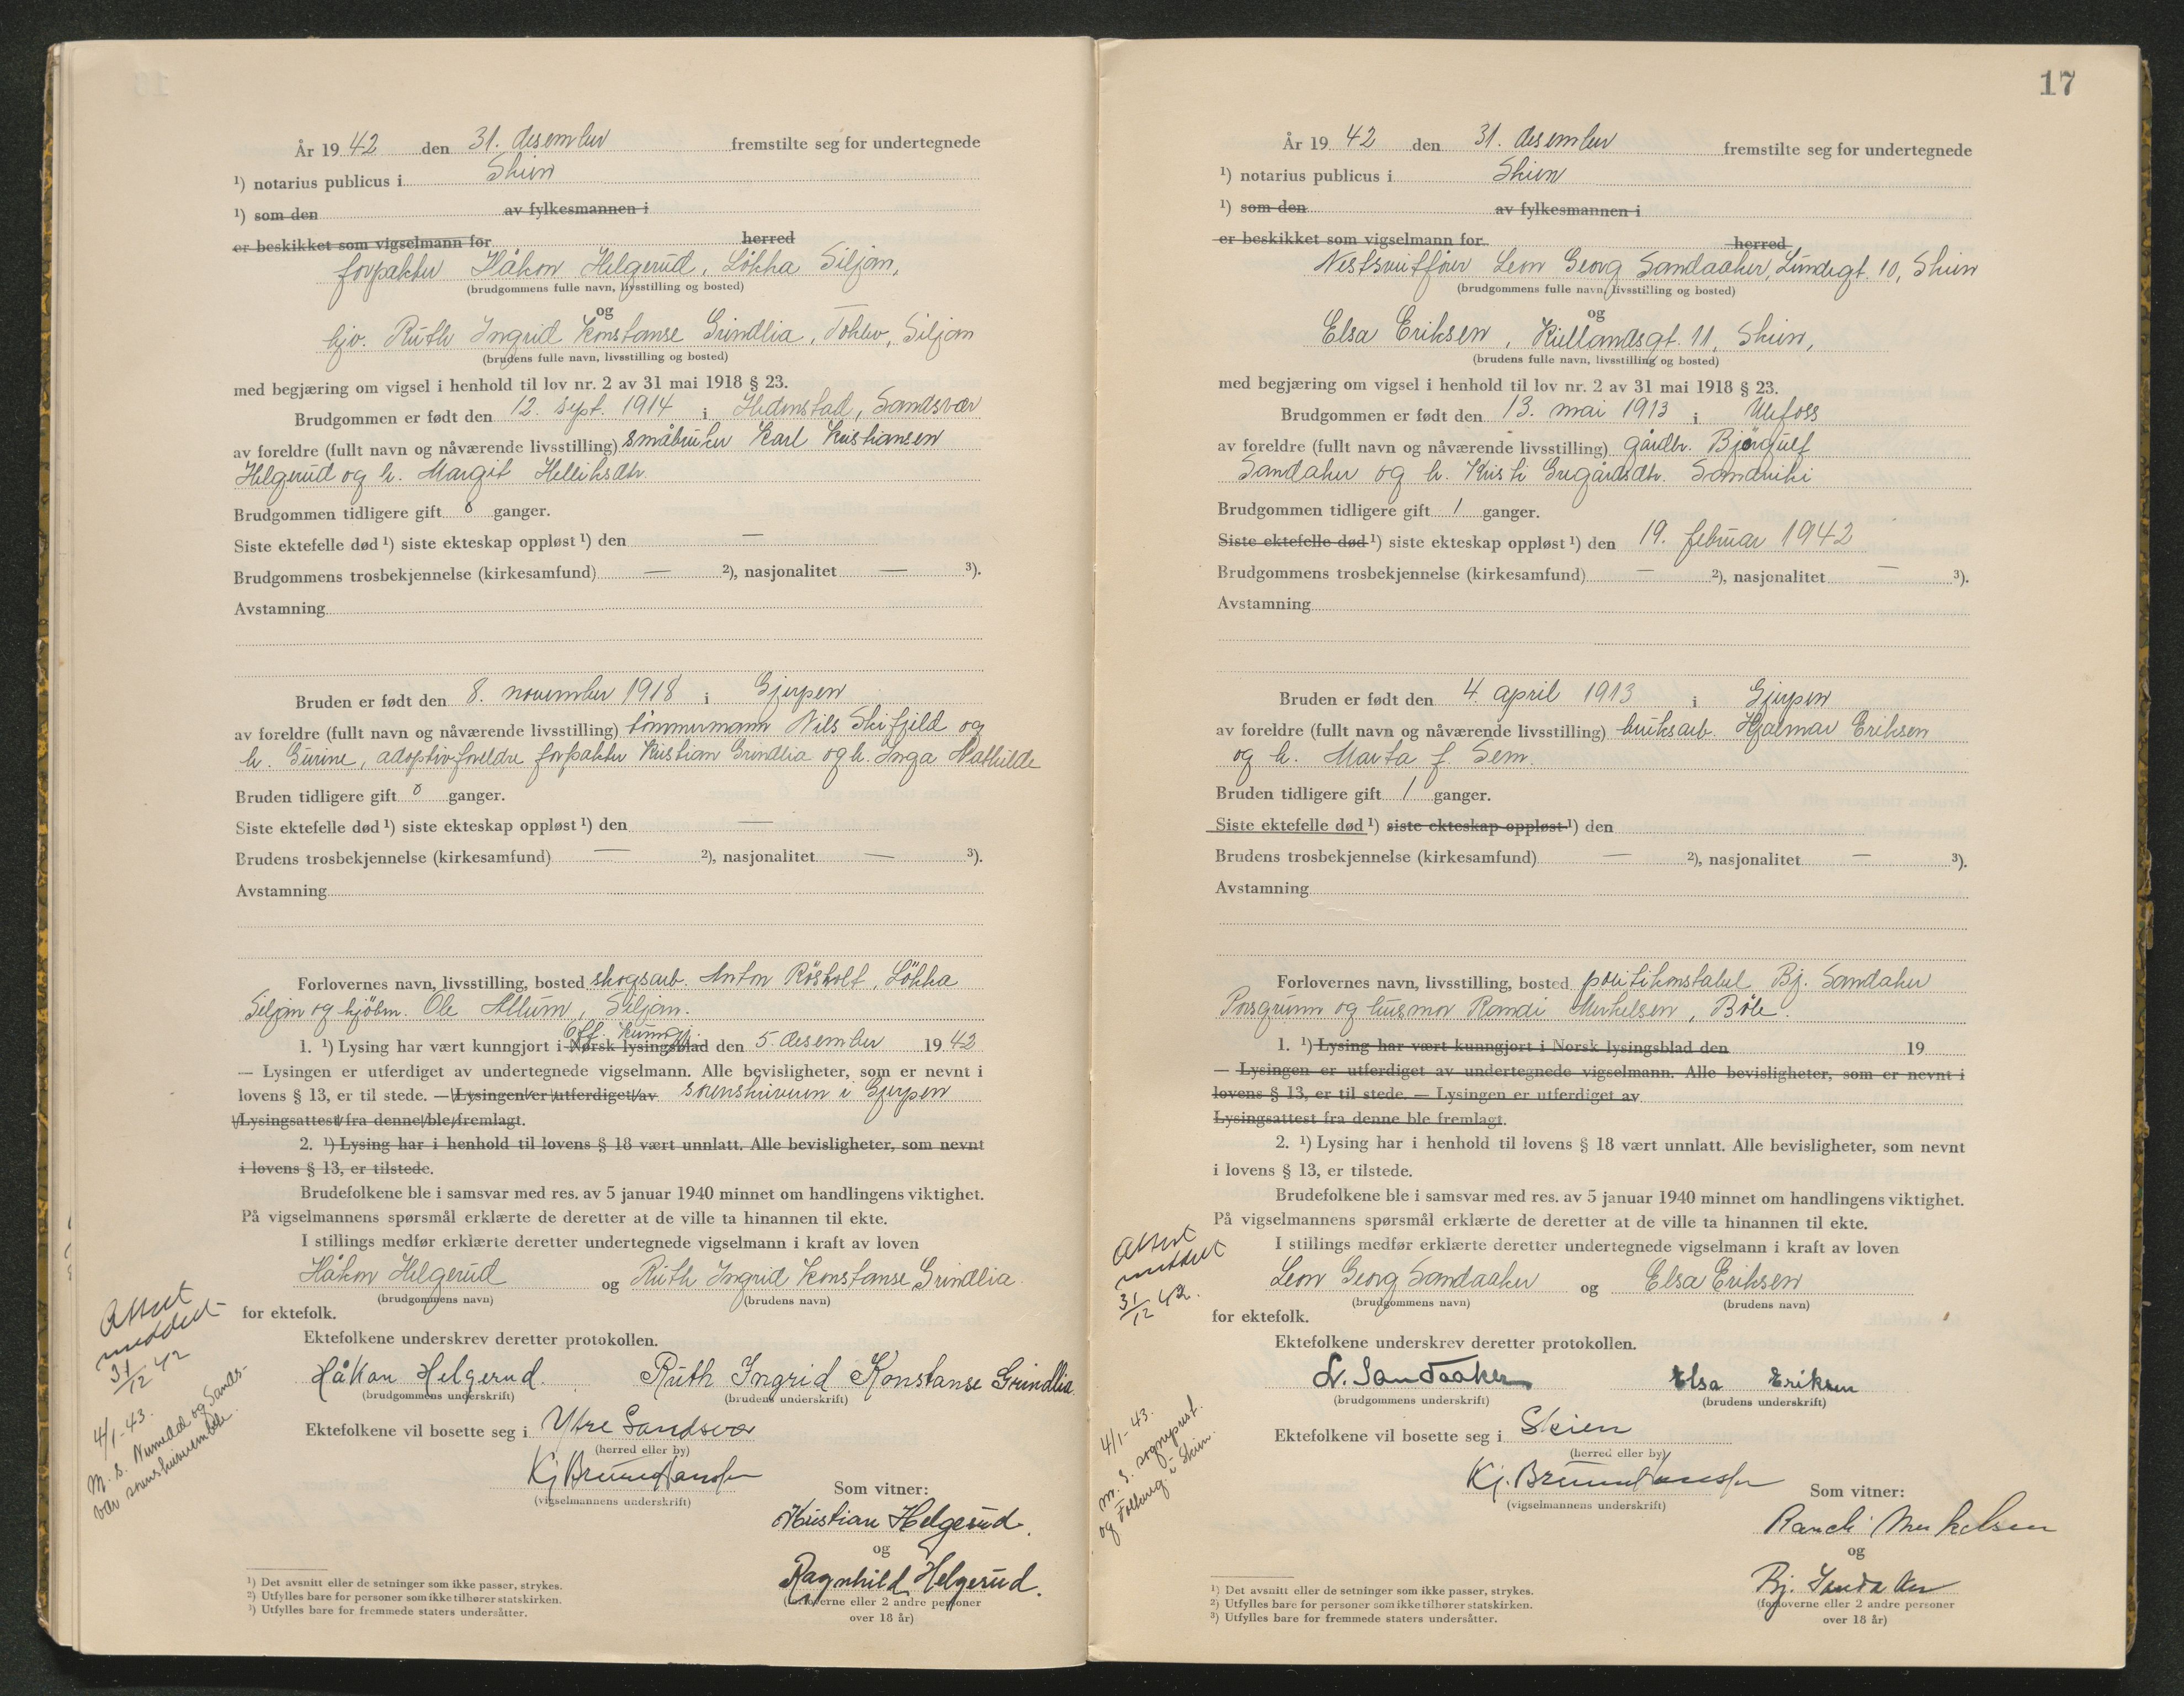 År 1942 den 31. desember fremstilte seg for undertegnede
¹) notarius publicus i Skien
¹) som den av fylkesmannen i
er beskikket som vigselmann for herred
forpakter Håkon Helgerud, Løkka Siljan,
(brudgommens fulle navn, livsstilling og bosted)
og
hjv. Ruth Ingrid Konstanse Grindlia, Siljan
(brudens fulle navn, livsstilling og bosted)
med begjæring om vigsel i henhold til lov nr. 2 av 31 mai 1918 § 23.
Brudgommen er født den 12. sept. 1914 i Hedenstad, Sandsvær
av foreldre (fullt navn og nåværende livsstilling) småbruker Karl Kristiansen
Helgerud og h. Margit Helleiksdtr.
Brudgommen tidligere gift 0 ganger.
Siste ektefelle død ¹) siste ekteskap oppløst ¹) den —
Brudgommens trosbekjennelse (kirkesamfund) — ²), nasjonalitet — ³).
Avstamning
Bruden er født den 8. november 1918 i Gjerpen
av foreldre (fullt navn og nåværende livsstilling) tømmermann Nils Skifjeld og
h. Gurine, adoptivforeldre forpakter Kristian Grindlia og h. Inga Mathilde
Bruden tidligere gift 0 ganger.
Siste ektefelle død ¹) siste ekteskap oppløst ¹) den —
Brudens trosbekjennelse (kirkesamfund) — ²), nasjonalitet — ³).
Avstamning
Forlovernes navn, livsstilling, bosted skogsarb. Anton Røsholt, Løkka
Siljan og kjøbm. Ole Allum, Siljan.
Off. kunngj.
1. ¹) Lysing har vært kunngjort i Norsk lysingsblad den 5. desember 1942
— Lysingen er utferdiget av undertegnede vigselmann. Alle bevisligheter, som er nevnt i
lovens § 13, er til stede. — Lysingen er utferdiget av sorenskriveren i Gjerpen
Lysingsattest fra denne ble fremlagt.
2. ¹) Lysing har i henhold til lovens § 18 vært unnlatt. Alle bevisligheter, som nevnt
i lovens § 13, er tilstede.
Brudefolkene ble i samsvar med res. av 5 januar 1940 minnet om handlingens viktighet.
På vigselmannens spørsmål erklærte de deretter at de ville ta hinannen til ekte.
I stillings medfør erklærte deretter undertegnede vigselmann i kraft av loven
Håkon Helgerud og Ruth Ingrid Konstanse Grindlia
(brudgommens navn) (brudens navn)
for ektefolk.
Attest
meddelt
31/12 42
Ektefolkene underskrev deretter protokollen.
Håkon Helgerud. Ruth Ingrid Konstanse Grindlia
(brudgommens underskrift) (brudens underskrift)
4/1-43.
M. s. Numedal og Sands-
vær sorenskriverembede.
Ektefolkene vil bosette seg i Ytre Sandsvær
(herred eller by)
Kj
(vigselmannens underskrift)
Som vitner:
Kristian Helgerud.
og
Ragnhild Helgerud.
(forloverne eller 2 andre personer
over 18 år)
¹) Det avsnitt eller de setninger som ikke passer, strykes.
²) Utfylles bare for personer som ikke tilhører statskirken.
³) Utfylles bare for fremmede staters undersåtter.
17
År 1942 den 31. desember fremstilte seg for undertegnede
¹) notarius publicus i Skien
¹) som den av fylkesmannen i
er beskikket som vigselmann for herred
Leon Georg Sandaaker, Lundegt. 10, Skien
(brudgommens fulle navn, livsstilling og bosted)
og
Elsa Eriksen, Kiellandsgt. 11, Skien,
(brudens fulle navn, livsstilling og bosted)
med begjæring om vigsel i henhold til lov nr. 2 av 31 mai 1918 § 23.
Brudgommen er født den 13. mai 1913 i Ulefoss
av foreldre (fullt navn og nåværende livsstilling) gårdbr. Bjørgulf
Sandaker og h. Kristi Gregårdsdtr.
Brudgommen tidligere gift 1 ganger.
Siste ektefelle død ¹) siste ekteskap oppløst ¹) den 19. februar 1942
Brudgommens trosbekjennelse (kirkesamfund) — ²), nasjonalitet — ³).
Avstamning
Bruden er født den 4. april 1913 i Gjerpen
av foreldre (fullt navn og nåværende livsstilling) bruksarb. Hjalmar Eriksen
og h. Marta f. Sem.
Bruden tidligere gift 1 ganger.
Siste ektefelle død ¹) siste ekteskap oppløst ¹) den
Brudens trosbekjennelse (kirkesamfund) — ²), nasjonalitet — ³).
Avstamning
Forlovernes navn, livsstilling, bosted politikonstabel Bj. Sandaker
Porsgrunn og husmor Randi Merkelsen, Bøle.
1. ¹) Lysing har vært kunngjort i Norsk lysingsblad den 19
— Lysingen er utferdiget av undertegnede vigselmann. Alle bevisligheter, som er nevnt i
lovens § 13, er til stede. — Lysingen er utferdiget av
Lysingsattest fra denne ble fremlagt.
2. ¹) Lysing har i henhold til lovens § 18 vært unnlatt. Alle bevisligheter, som nevnt
i lovens § 13, er tilstede.
Brudefolkene ble i samsvar med res. av 5 januar 1940 minnet om handlingens viktighet.
På vigselmannens spørsmål erklærte de deretter at de ville ta hinannen til ekte.
I stillings medfør erklærte deretter undertegnede vigselmann i kraft av loven
Leon Georg Sandaaker og Elsa Eriksen
(brudgommens navn) (brudens navn)
for ektefolk.
Attest
meddelt
31/12 42.
Ektefolkene underskrev deretter protokollen.
L. Sandaaker Elsa Eriksen
(brudgommens underskrift) (brudens underskrift)
4/1-43.
m. s. sogneprest.
og Folkereg. i Skien.
Ektefolkene vil bosette seg i Skien
(herred eller by)
Kj.
(vigselmannens underskrift)
Som vitner:
Randi Merkelsen
og
Bj. Sandaker
(forloverne eller 2 andre personer
over 18 år)
¹) Det avsnitt eller de setninger som ikke passer, strykes.
²) Utfylles bare for personer som ikke tilhører statskirken.
³) Utfylles bare for fremmede staters undersåtter.